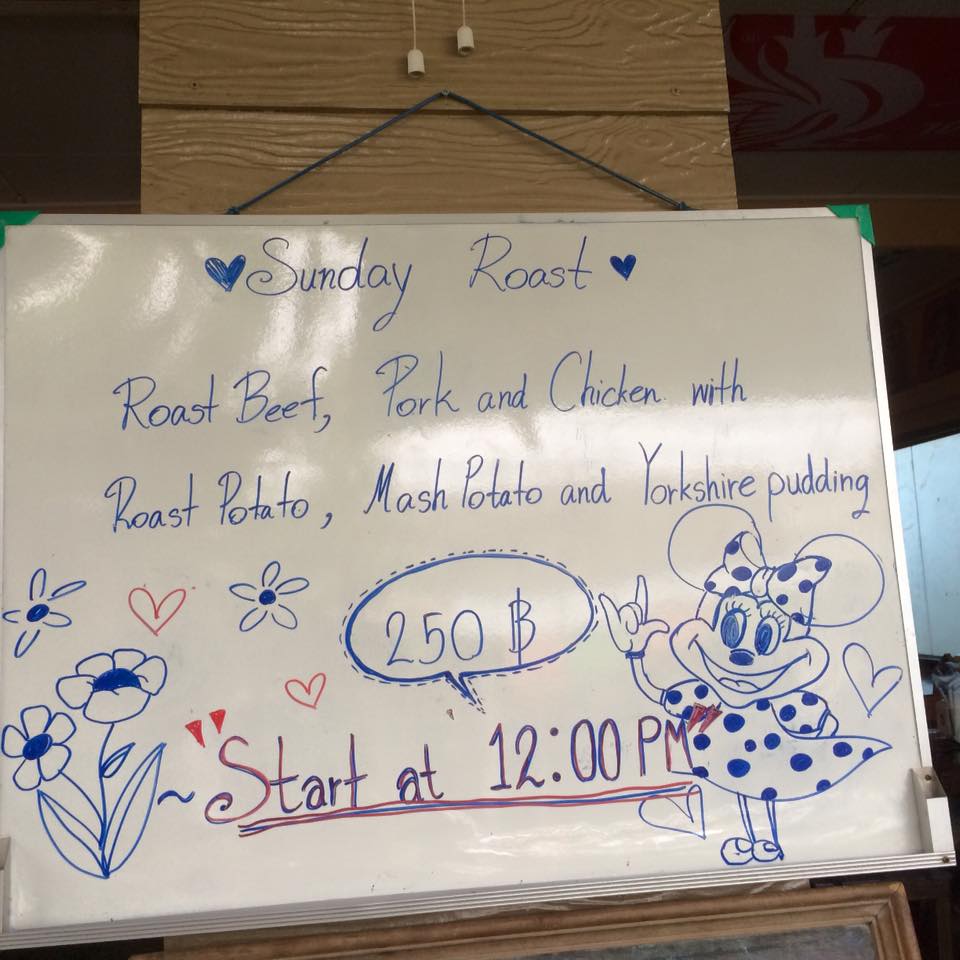 Sunday Roast
Roast Beef, Pork and Chicken with
Roast Potato, Mash Potato and Yorkshire pudding
250 ฿
~ "Start at 12:00 PM"